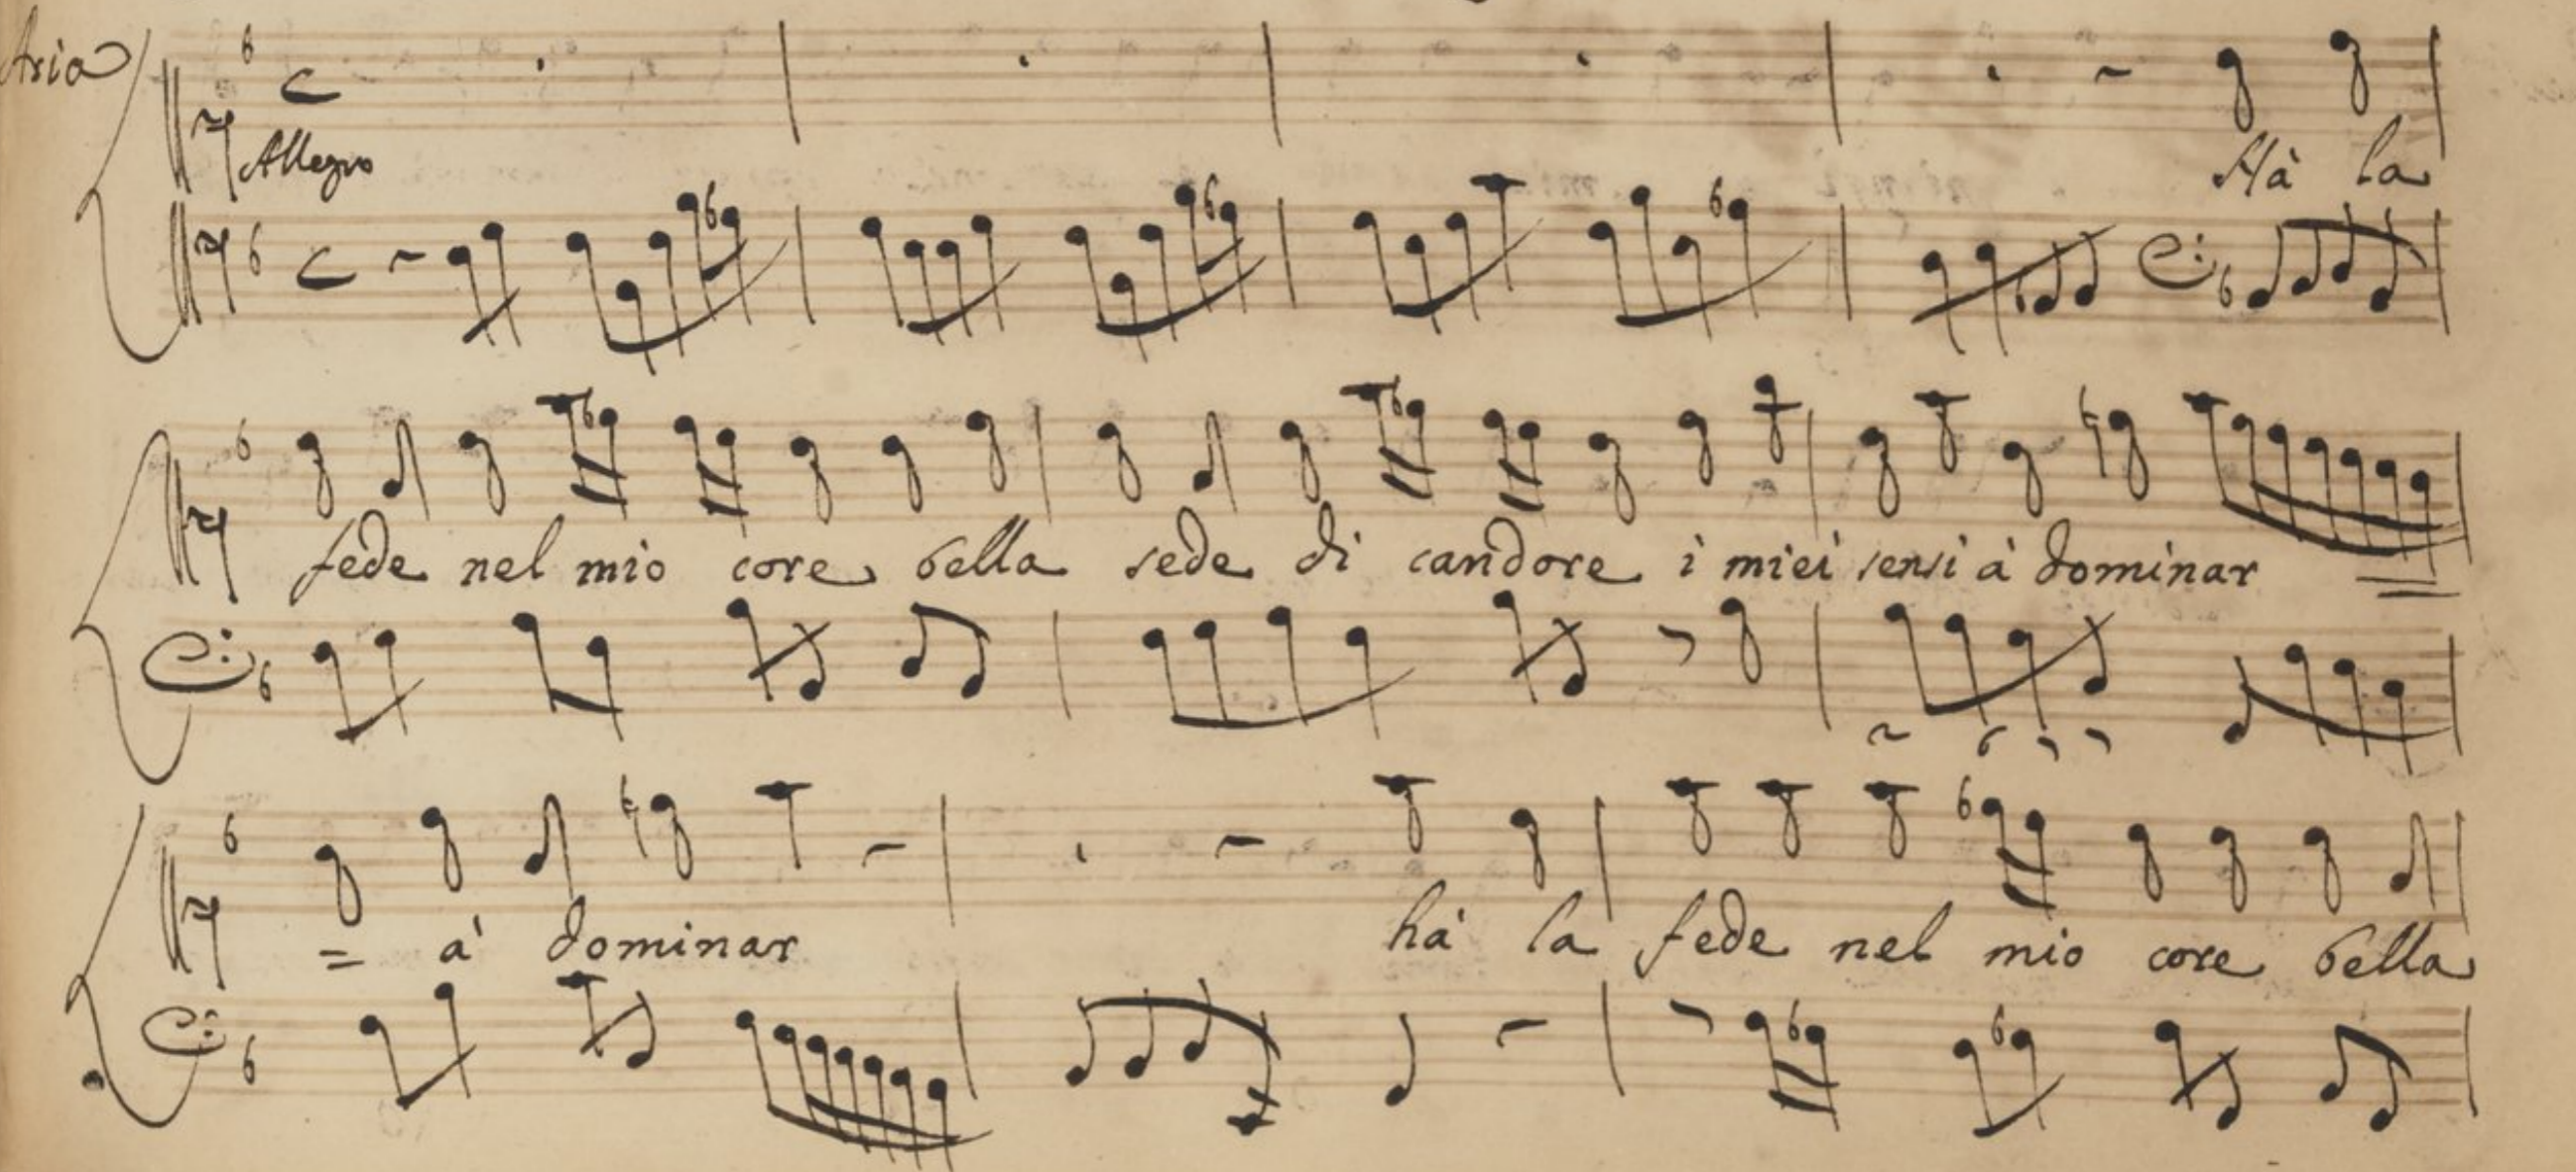 Aria
Allegro
Hà la
fede nel mio core bella sede di candore i miei sensi à dominar
= à dominar hà la fede nel mio core bella